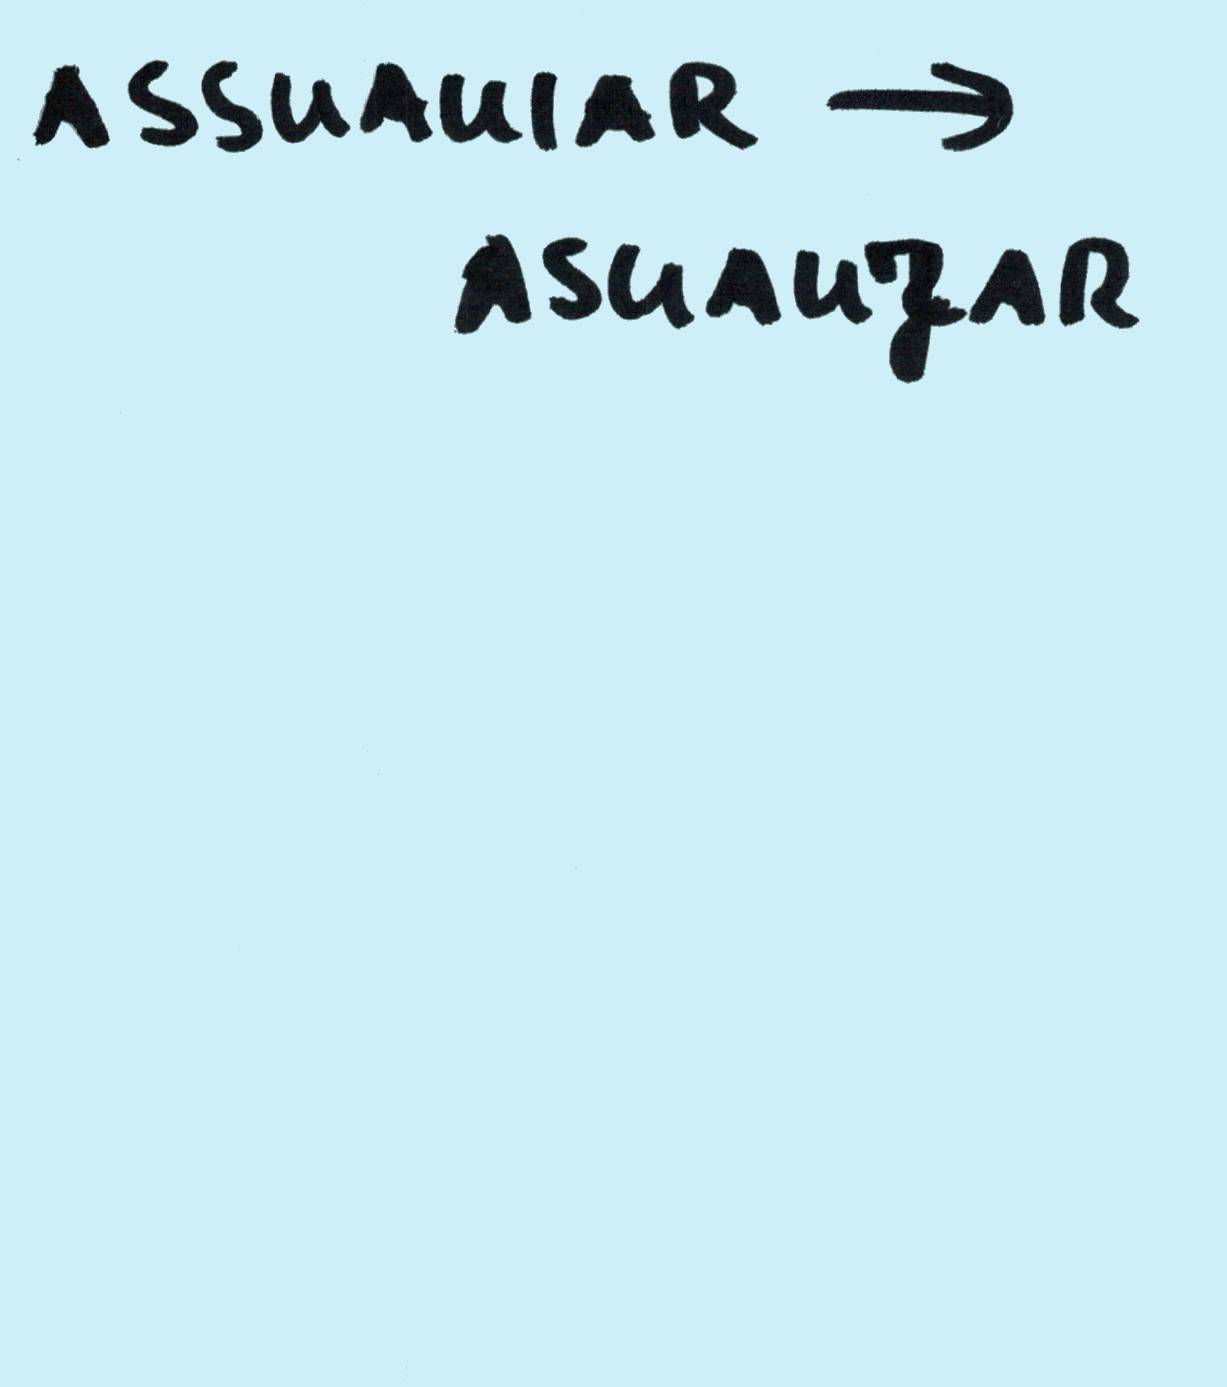 ASSUAUIAR →
ASUAUZAR